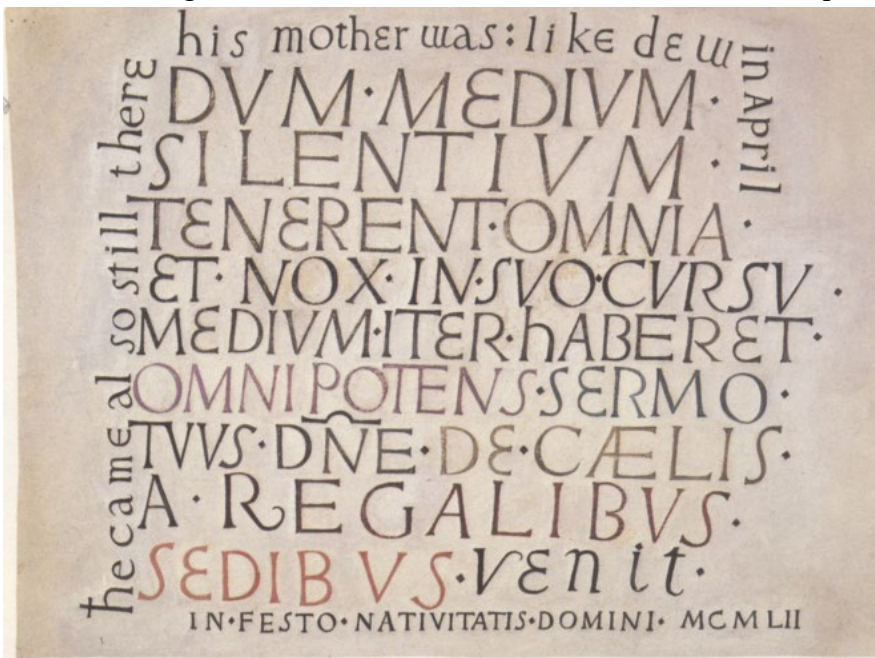 he came al so still there
his mother was: like dew
in April
DVM·MEDIVM·
SILENTIVM·
TENERENT·OMNIA·
ET·NOX·IN·SVO·CVRSV·
MEDIVM·ITER·hABERET·
OMNIPOTENS·SERMO·
TVVS·DN̄E·DE·CÆLIS·
A·REGALIBVS·
SEDIBVS·venit·
IN·FESTO·NATIVITATIS·DOMINI· MCMLII